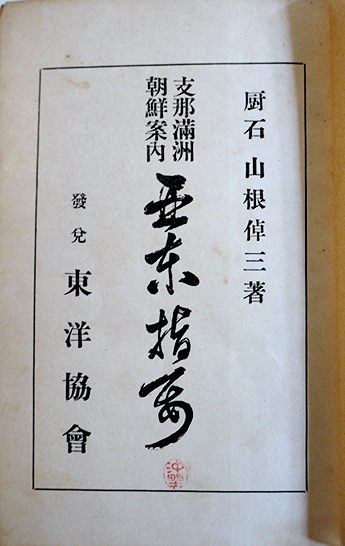 厨石 山根倬三著
支那滿洲
朝鮮案内
亜東指要
發兌 東洋協會